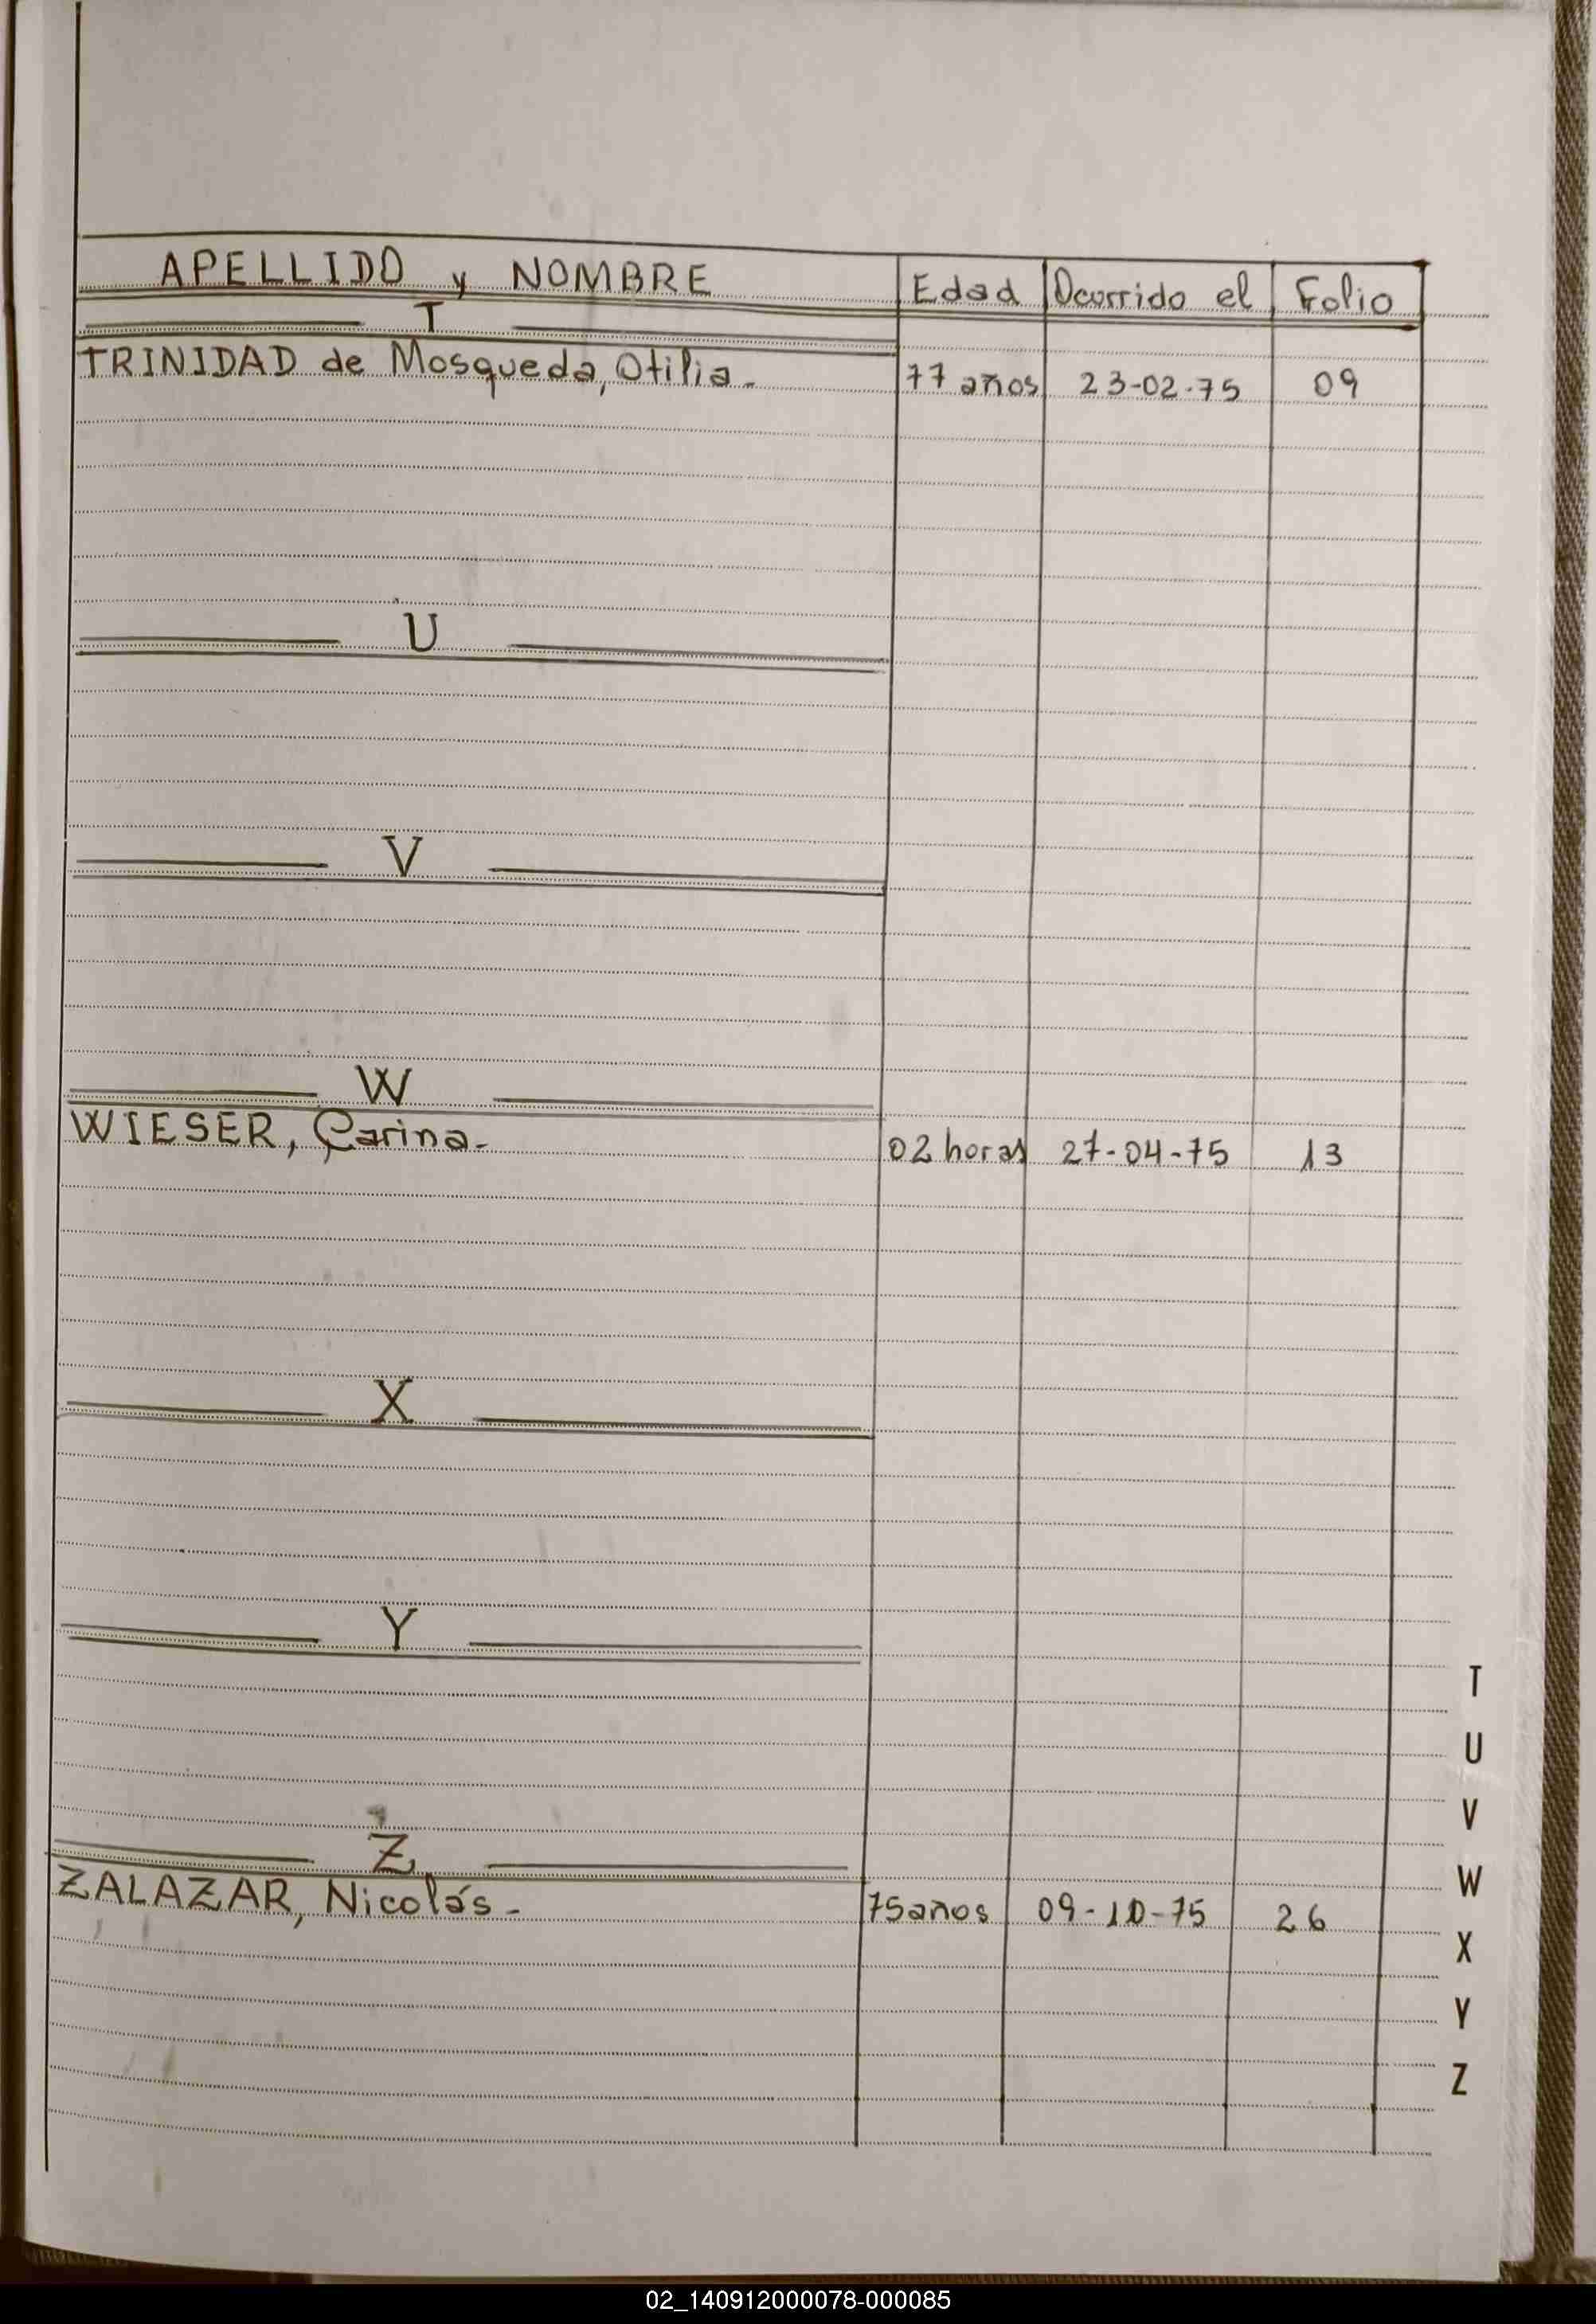 APELLIDO y NOMBRE Edad Ocurrido el Folio
T
TRINIDAD de Mosqueda, Otilia.- 77 años 23-02-75 09
U
V
W
WIESER, Carina.- 02 horas 27-04-75 13
X
Y
Z
ZALAZAR, Nicolás.- 75 años 09-10-75 26
T
U
V
W
X
Y
Z
02_140912000078-000085